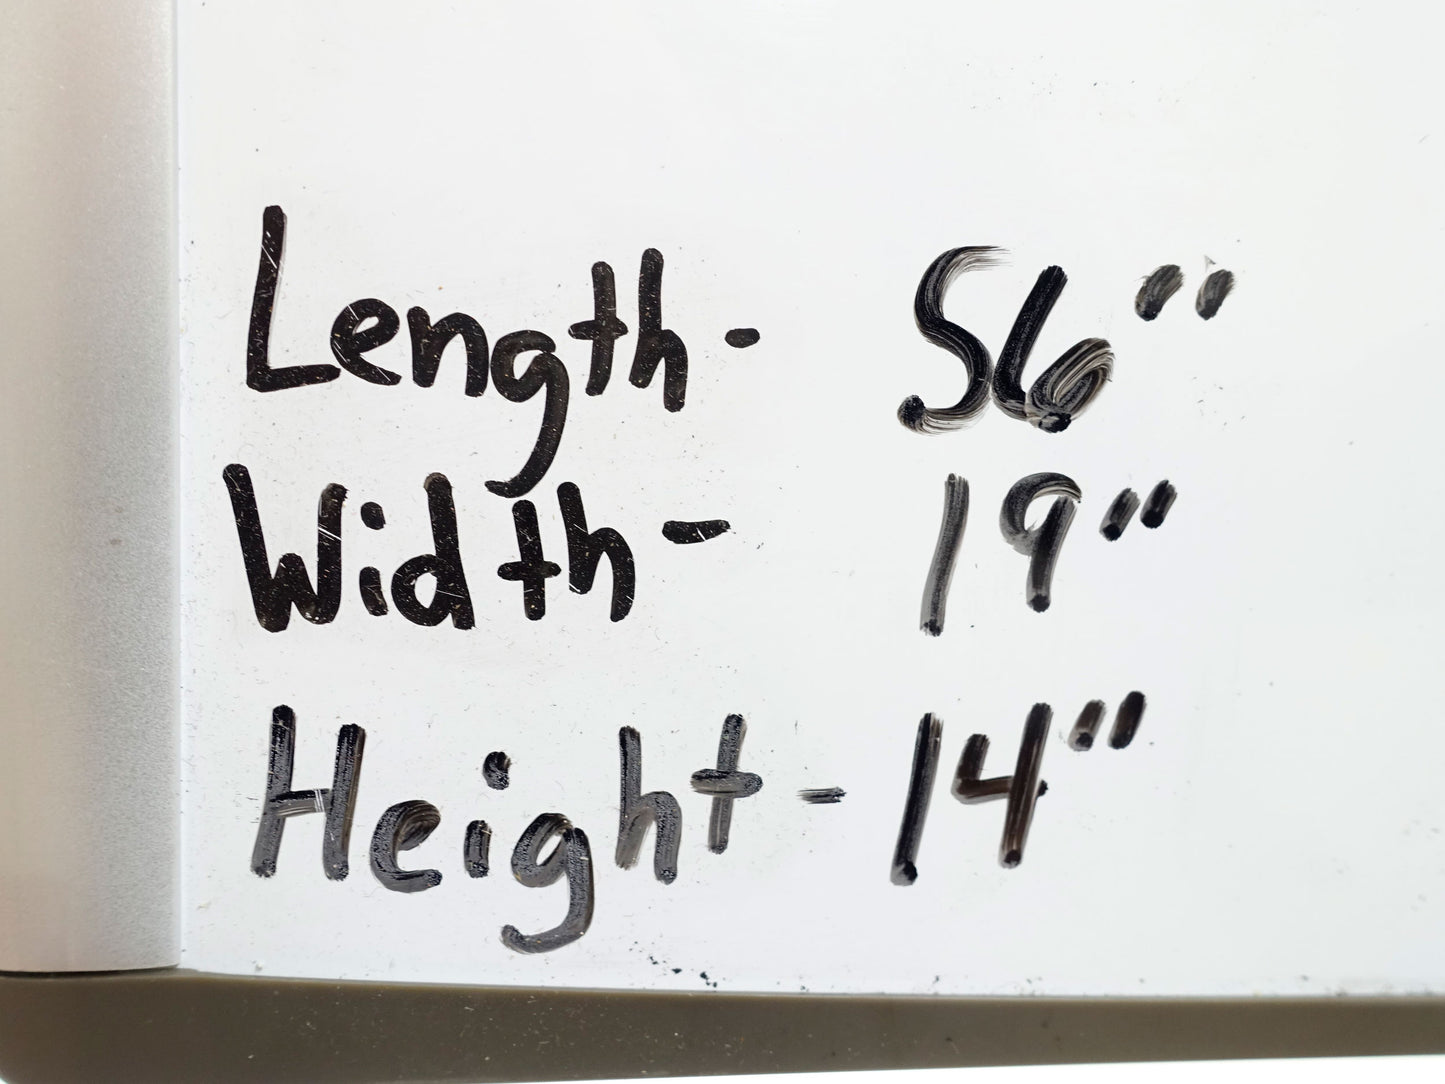 Length- 56"
Width- 19"
Height- 14"